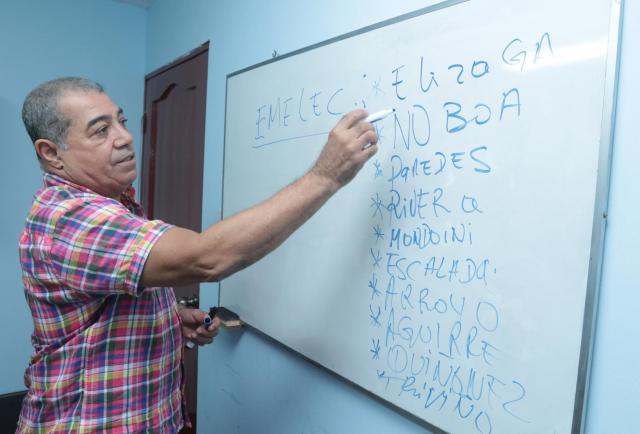 EMELEC:
* Elizaga
* NOBOA
* PAREDES
* RIVERA
* MONDOINI
* ESCALADA.
* ARROYO
* AGUIRRE
* QUIÑONEZ
* TRIVIÑO